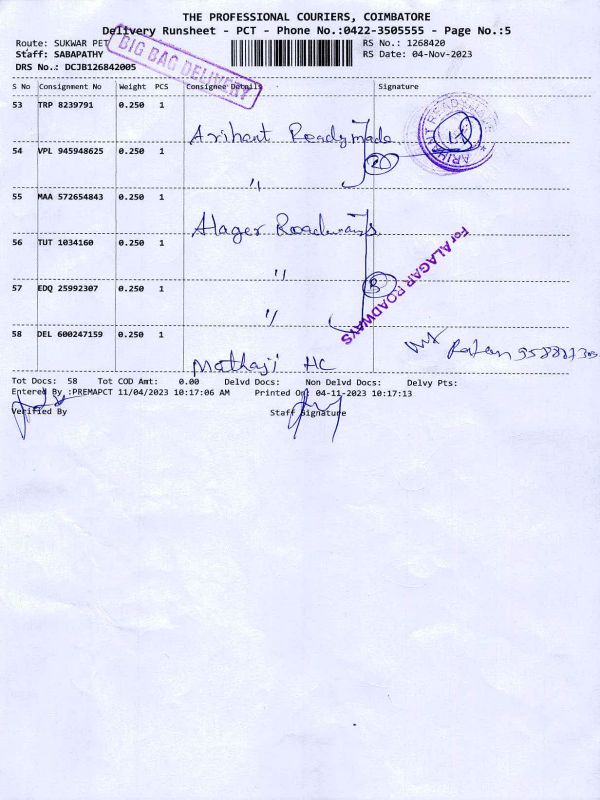 THE PROFESSIONAL COURIERS, COIMBATORE
Delivery Runsheet - PCT - Phone No.:0422-3505555 - Page No.:5
Route: SUKWAR PET
RS No.: 1268420
Staff: SABAPATHY
RS Date: 04-Nov-2023
DRS No.: DCJB126842005
BIG BAG DELIVERY
S No Consignment No Weight PCS Consignee Details Signature
53 TRP 8239791 0.250 1 Arihant Readymade
ARIHANT READYMADE
54 VPL 945948625 0.250 1 〃
2
55 MAA 572654843 0.250 1 Alager Roadways
56 TUT 1034160 0.250 1 〃
For ALAGAR ROADWAYS
57 EDQ 25992307 0.250 1 〃
3
58 DEL 600247159 0.250 1 Mathaji HC
Tot Docs: 58 Tot COD Amt: 0.00 Delvd Docs: Non Delvd Docs: Delvy Pts:
Entered By :PREMAPCT 11/04/2023 10:17:06 AM Printed On: 04-11-2023 10:17:13
Verified By Staff Signature